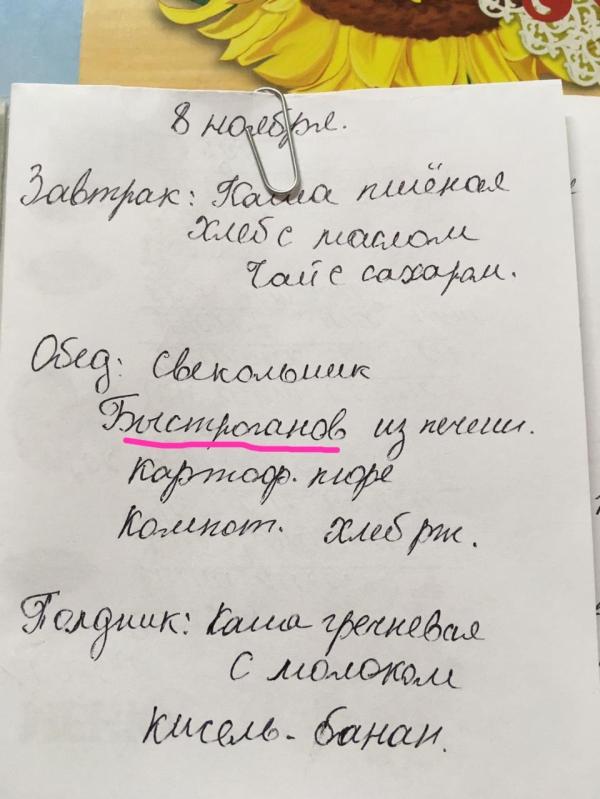 8 ноября.
Завтрак: Каша пшёная
Хлеб с маслом
Чай с сахаром.
Обед: Свекольник
Быстроганов из печени.
Картоф. пюре
Компот. Хлеб рж.
Полдник: Каша гречневая
с молоком
кисель - банан.